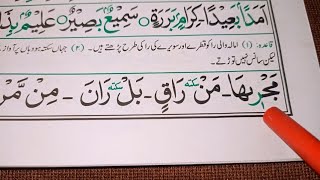 اَمَدًۢا بَعِيْدًا ـ كِرَامٍۭ بَرَرَةٍ ○ سَمِيْعٌۢ بَصِيْرٌ ○ عَلِيْمٌۢ
قاعدہ: (۱) امالہ والی را کو قطرے اور سویرے کی را کی طرح پڑھتے ہیں۔ (۲) جہاں سکتہ ہو وہاں پر آواز
لیکن سانس نہیں توڑتے۔
مَجْرٖىهَا ـ مَنْ سكته رَاقٍ ـ بَلْ سكته رَانَ ـ مِنْ